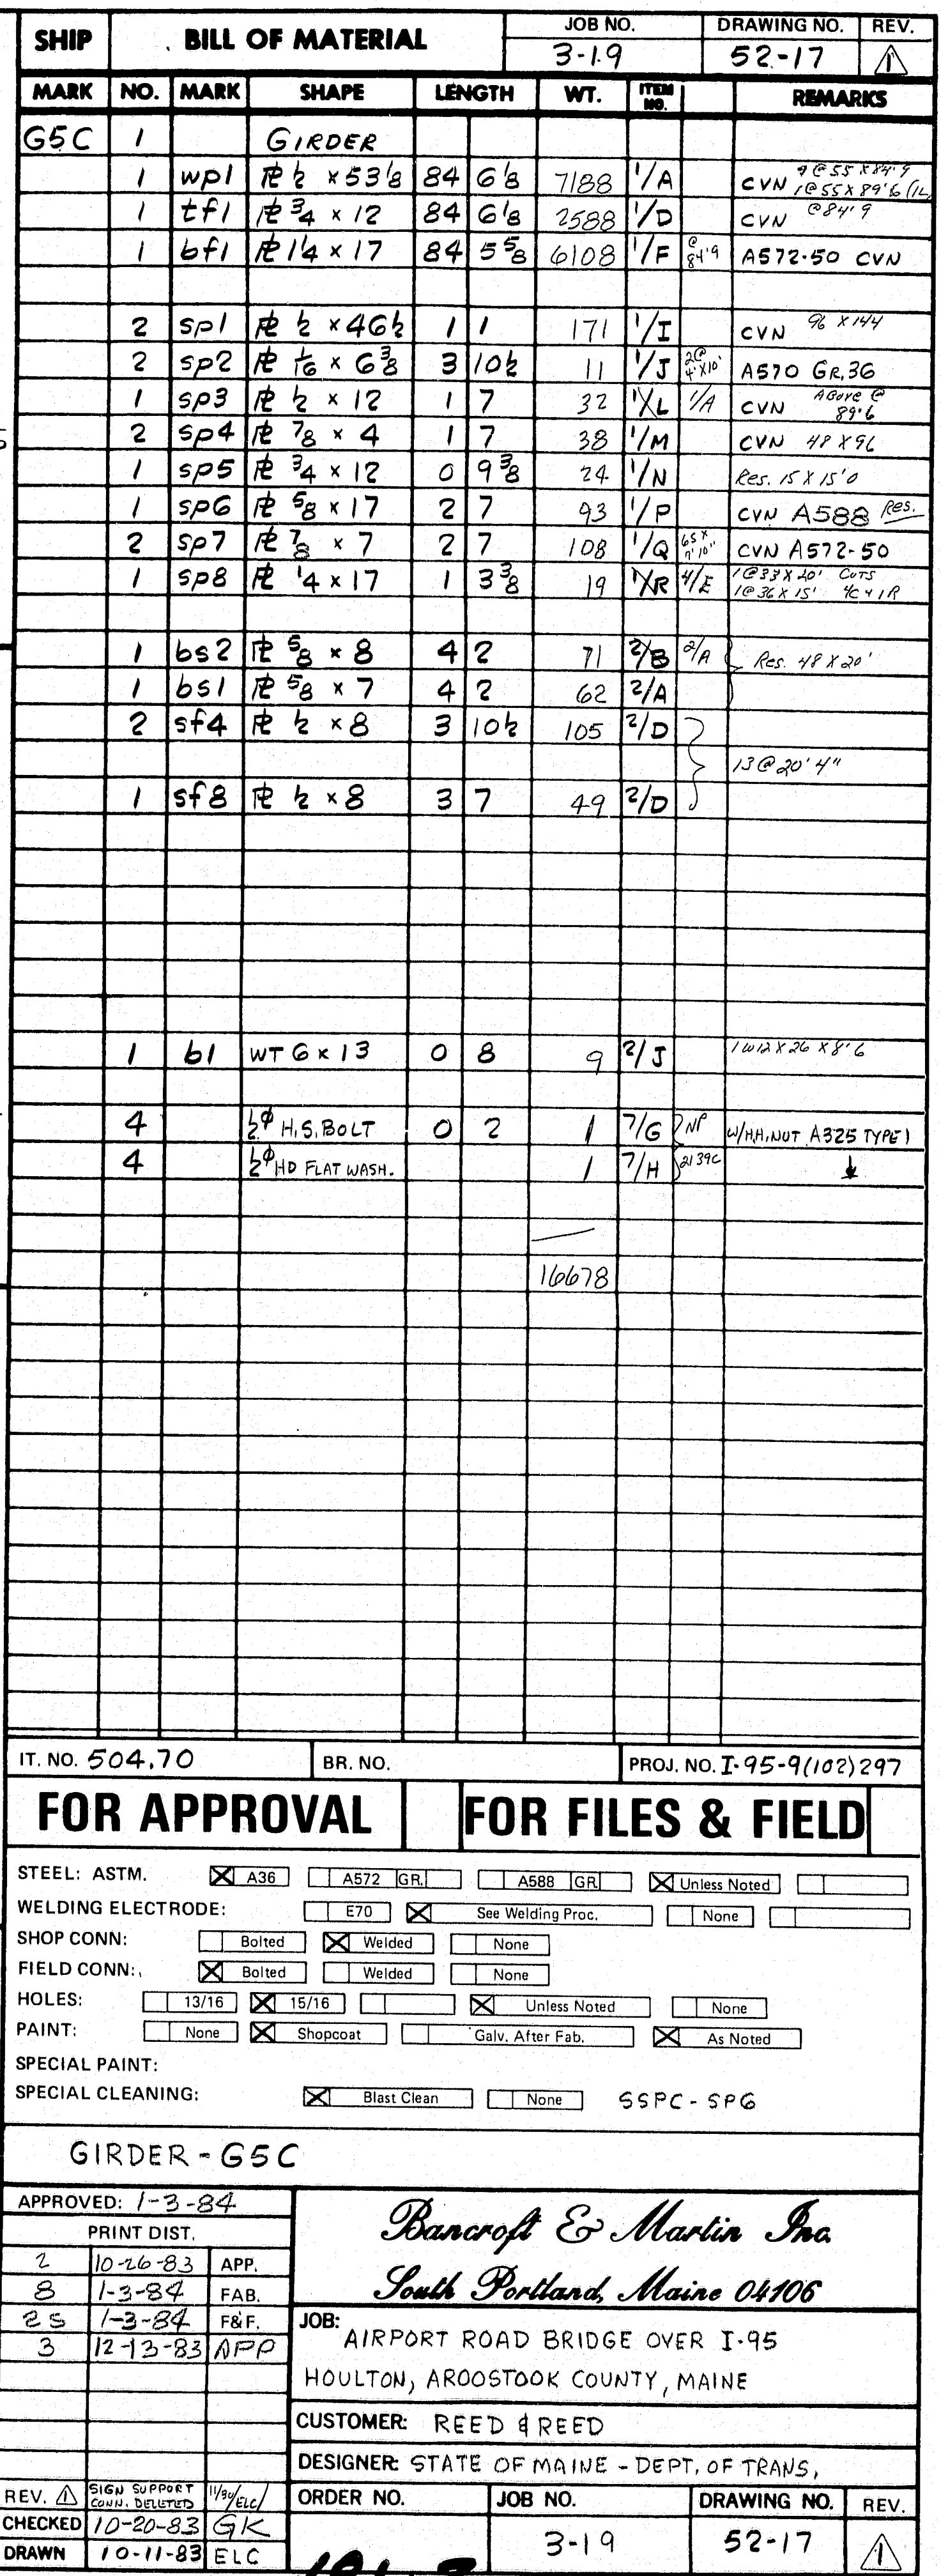 SHIP BILL OF MATERIAL JOB NO. 3-19 DRAWING NO. 52-17 REV. 1
MARK NO. MARK SHAPE LENGTH WT. ITEM NO. REMARKS
G5C 1 GIRDER
1 wp1 ℄ ½ × 53⅛ 84 6⅛ 7188 1/A CVN 9@55×84'9 1@55×89'6
1 tf1 ℄ ¾ × 12 84 6⅛ 2588 1/D CVN @84'9
1 bf1 ℄ 1¼ × 17 84 5⅝ 6108 1/F @84'9 A572-50 CVN
2 sp1 ℄ ½ × 46½ 1 1 171 1/I CVN 96 × 144
2 sp2 ℄ 1/16 × 6⅜ 3 10½ 11 1/J 2@ 4'×10' A570 GR.36
1 sp3 ℄ ½ × 12 1 7 32 1/L 1/A CVN ABOVE @ 89'6
2 sp4 ℄ ⅞ × 4 1 7 38 1/M CVN 48 × 96
1 sp5 ℄ ¾ × 12 0 9⅜ 24 1/N Res. 15 × 15'0
1 sp6 ℄ ⅝ × 17 2 7 93 1/P CVN A588 Res.
2 sp7 ℄ ⅞ × 7 2 7 108 1/Q 65 × 7'10" CVN A572-50
1 sp8 ℄ ¼ × 17 1 3⅜ 19 1/R 4/E 1@33×20' CUTS 1@36×15' 4C+1R
1 bs2 ℄ ⅝ × 8 4 2 71 2/B 2/A Res. 48×20'
1 bs1 ℄ ⅝ × 7 4 2 62 2/A
2 sf4 ℄ ½ × 8 3 10½ 105 2/D
13@20'4"
1 sf8 ℄ ½ × 8 3 7 49 2/D
1 b1 WT 6 × 13 0 8 9 2/J 1 W12×26×8'6
4 ½φ H.S. BOLT 0 2 1 7/G NP W/H.H. NUT A325 TYPE 1
4 ½φ HD FLAT WASH. 1 7/H 2139C
16678
IT. NO. 504.70 BR. NO. PROJ. NO. I-95-9(102)297
FOR APPROVAL FOR FILES & FIELD
STEEL: ASTM. A36 A572 GR. A588 GR Unless Noted
WELDING ELECTRODE: E70 See Welding Proc. None
SHOP CONN: Bolted Welded None
FIELD CONN: Bolted Welded None
HOLES: 13/16 15/16 Unless Noted None
PAINT: None Shopcoat Galv. After Fab. As Noted
SPECIAL PAINT:
SPECIAL CLEANING: Blast Clean None SSPC-SP6
GIRDER - G5C
APPROVED: 1-3-84
PRINT DIST.
2 10-26-83 APP.
8 1-3-84 FAB.
2S 1-3-84 F&F.
3 12-13-83 APP
Bancroft & Martin Inc.
South Portland, Maine 04106
JOB: AIRPORT ROAD BRIDGE OVER I-95
HOULTON, AROOSTOOK COUNTY, MAINE
CUSTOMER: REED & REED
DESIGNER: STATE OF MAINE - DEPT. OF TRANS.
REV. 1 SIGN SUPPORT CONN. DELETED ELC
CHECKED 10-20-83 GK
DRAWN 10-11-83 ELC
ORDER NO. JOB NO. 3-19 DRAWING NO. 52-17 REV. 1